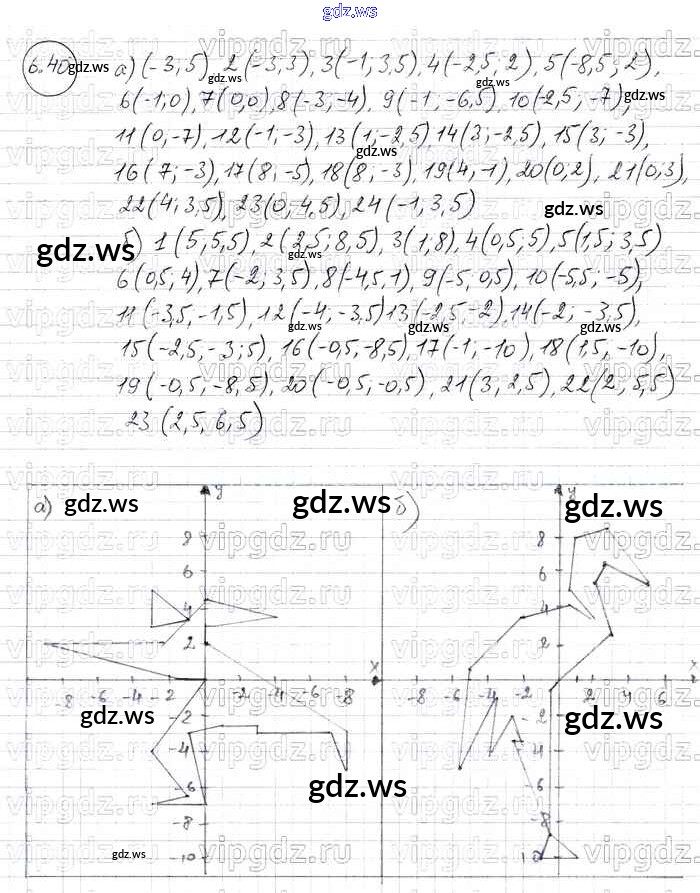 gdz.ws
6.40 а) (-3; 5), 2(-3; 3), 3(-1; 3,5), 4(-2,5; 2), 5(-8,5; 2),
6(-1; 0), 7(0,0), 8(-3; -4), 9(-1; -6,5), 10(-2,5; -7),
11(0; -7), 12(-1; -3), 13(1; -2,5) 14(3; -2,5), 15(3; -3),
16(7; -3), 17(8; -5), 18(8; -3), 19(4, -1), 20(0; 2), 21(0,3),
22(4; 3,5), 23(0; 4,5), 24(-1, 3,5)
б) 1(5; 5,5), 2(2,5; 8,5), 3(1; 8), 4(0,5; 5), 5(1,5; 3,5)
6(0,5; 4), 7(-2; 3,5), 8(-4,5, 1), 9(-5; 0,5), 10(-5,5; -5),
11(-3,5, -1,5), 12(-4; -3,5) 13(-2,5, -2), 14(-2; -3,5),
15(-2,5, -3; 5), 16(-0,5, -8,5), 17(-1, -10), 18(1,5, -10),
19(-0,5; -8,5), 20(-0,5, -0,5), 21(3, 2,5), 22(2, 5,5)
23(2,5, 6,5)
а) y б) y
8 8
6 6
4 4
2 2
x x
-8 -6 -4 -2 -2 -4 -6 -8 -8 -6 -4 -2 2 4 6
-2 -2
-4 -4
-6 -6
-8 -8
-10 10
gdz.ws
vipgdz.ru